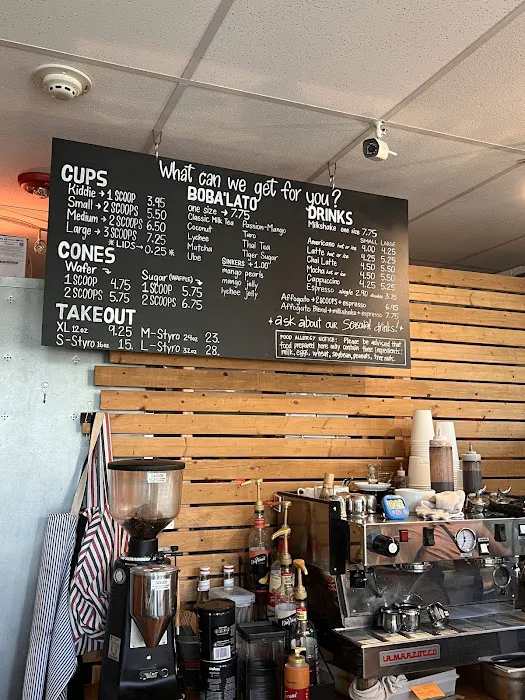 What can we get for you?
CUPS
Kiddie → 1 SCOOP 3.95
Small → 2 SCOOPS 5.50
Medium → 2 SCOOPS 6.50
Large → 3 SCOOPS 7.25
*LIDS → 0.25*
CONES
Wafer
1 SCOOP 4.75
2 SCOOPS 5.75
Sugar (WAFFLE)
1 SCOOP 5.75
2 SCOOPS 6.75
TAKEOUT
XL 12oz 9.25
S-Styro 16oz 15.
M-Styro 24oz 23.
L-Styro 32oz 28.
BOBA'LATO
one size → 7.75
Classic Milk Tea
Coconut
Lychee
Matcha
Ube
Passion-Mango
Taro
Thai Tea
Tiger Sugar
SINKERS +1.00
mango pearls
mango jelly
lychee jelly
DRINKS
Milkshake one size 7.75
SMALL LARGE
Americano hot or ice 4.00 4.25
Latte hot or ice 4.25 5.25
Chai Latte 4.50 5.50
Mocha hot or ice 4.50 5.50
Cappuccino 4.25 5.25
Espresso single 2.90 double 3.75
Affogato → 2 SCOOPS + espresso 6.95
Affogato Blend → milkshake + espresso 7.75
+ask about our seasonal drinks!+
FOOD ALLERGY NOTICE: Please be advised that
food prepared here may contain these ingredients:
milk, eggs, wheat, soybean, peanuts, tree nuts.
LA MARZOCCO